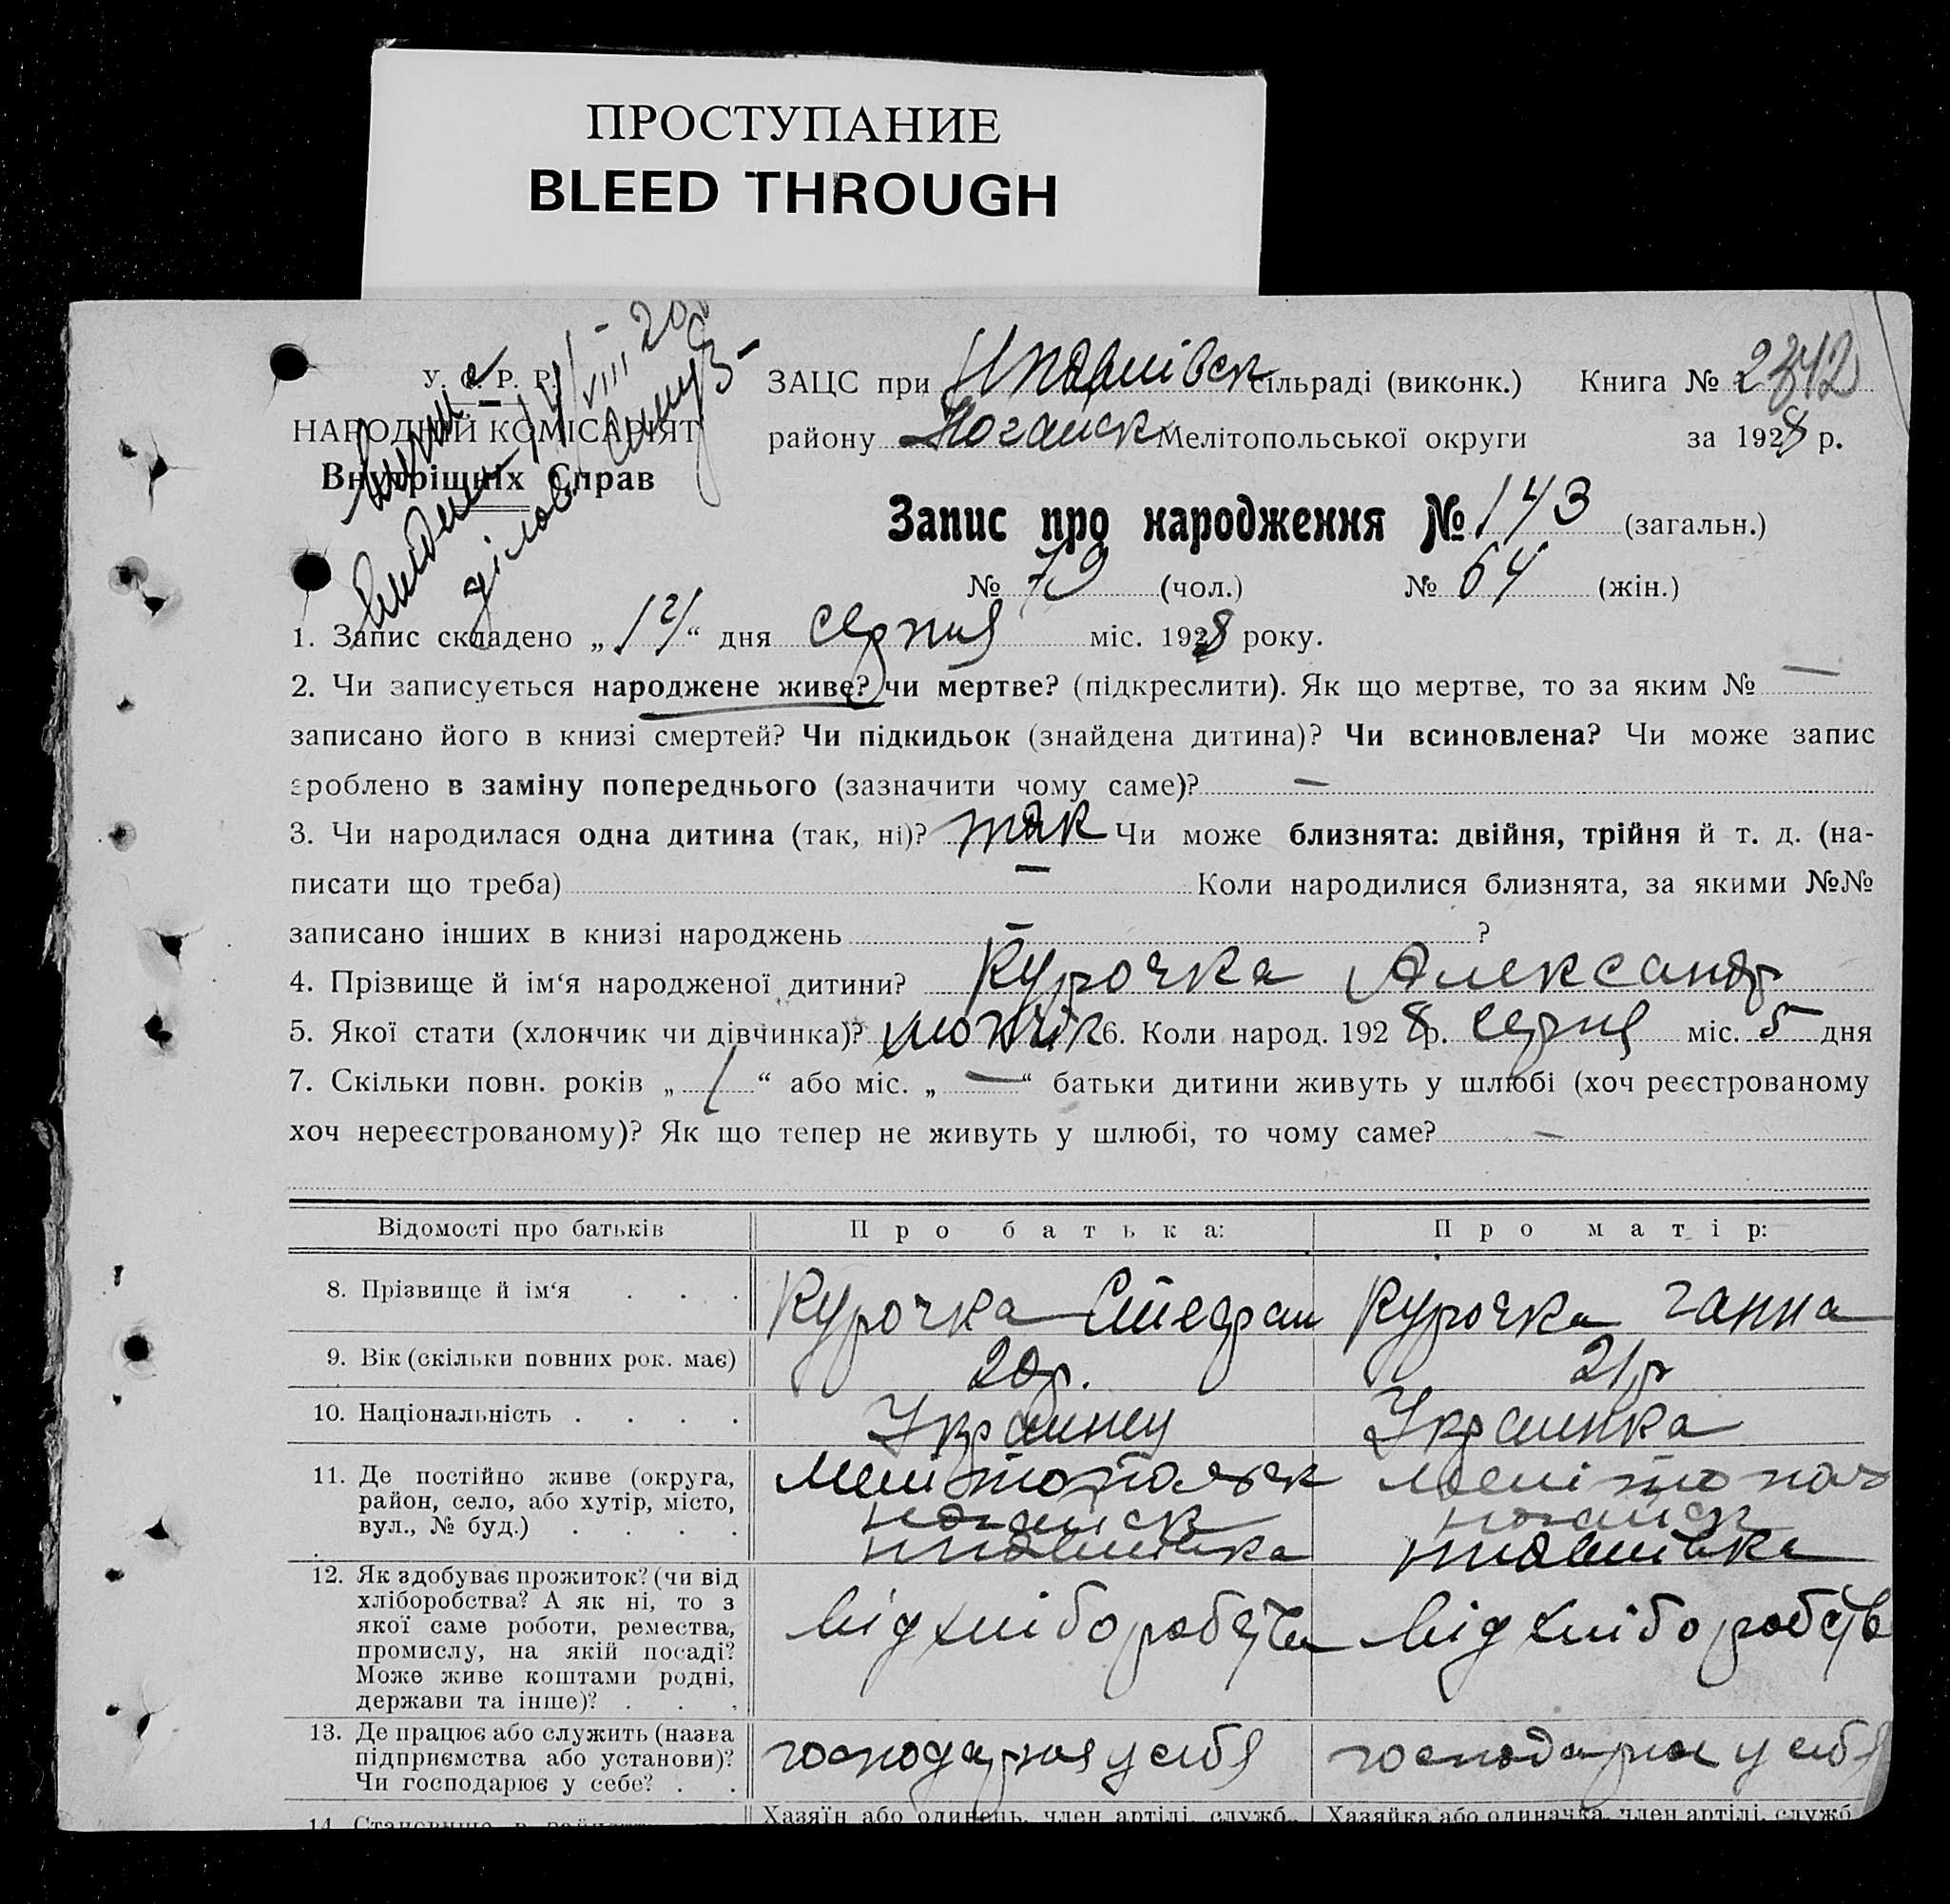 ПРОСТУПАНИЕ
BLEED THROUGH
У. С. Р. Р.
НАРОДНИЙ КОМІСАРІЯТ
Внутрішніх Справ
ЗАЦС при сільраді (виконк.) Книга №
району Ногайськ Мелітопольської округи за 1928 р.
Запис про народження № 143 (загальн.)
№ 79 (чол.) № 64 (жін.)
1. Запис складено „ “ дня серпня міс. 1928 року.
2. Чи записується народжене живе? чи мертве? (підкреслити). Як що мертве, то за яким № —
записано його в книзі смертей? Чи підкидьок (знайдена дитина)? Чи всиновлена? Чи може запис
зроблено в заміну попереднього (зазначити чому саме)? —
3. Чи народилася одна дитина (так, ні)? так Чи може близнята: двійня, трійня й т. д. (на-
писати що треба) — Коли народилися близнята, за якими №№
записано інших в книзі народжень — ?
4. Прізвище й ім‘я народженої дитини? Курочка Александр
5. Якої стати (хлопчик чи дівчинка)? 6. Коли народ. 1928 р. серпня міс. 5 дня
7. Скільки повн. років „ 1 “ або міс. „ — “ батьки дитини живуть у шлюбі (хоч реєстрованому
хоч нереєстрованому)? Як що тепер не живуть у шлюбі, то чому саме? —
Відомості про батьків Про батька: Про матір:
8. Прізвище й ім‘я . . . Курочка Стефан Курочка Ганна
9. Вік (скільки повних рок. має) 20 р. 21 р
10. Національність . . . . Українец Українка
11. Де постійно живе (округа, Мелітопольск Мелітопол
район, село, або хутір, місто, ногайск ногайск
вул., № буд.) . . . .
12. Як здобуває прожиток? (чи від
хліборобства? А як ні, то з
якої саме роботи, ремества, від хліборобства від хліборобств
промислу, на якій посаді?
Може живе коштами родні,
держави та інше)? . . .
13. Де працює або служить (назва
підприємства або установи)? господарює у себя господарює у себя
Чи господарює у себе? . .
Хазяїн або одинець, член артілі, служб. Хазяйка або одиначка, член артілі, служб